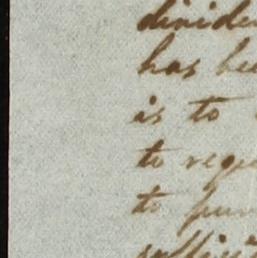 divide
has be
is to
to requ
to pur
suffici